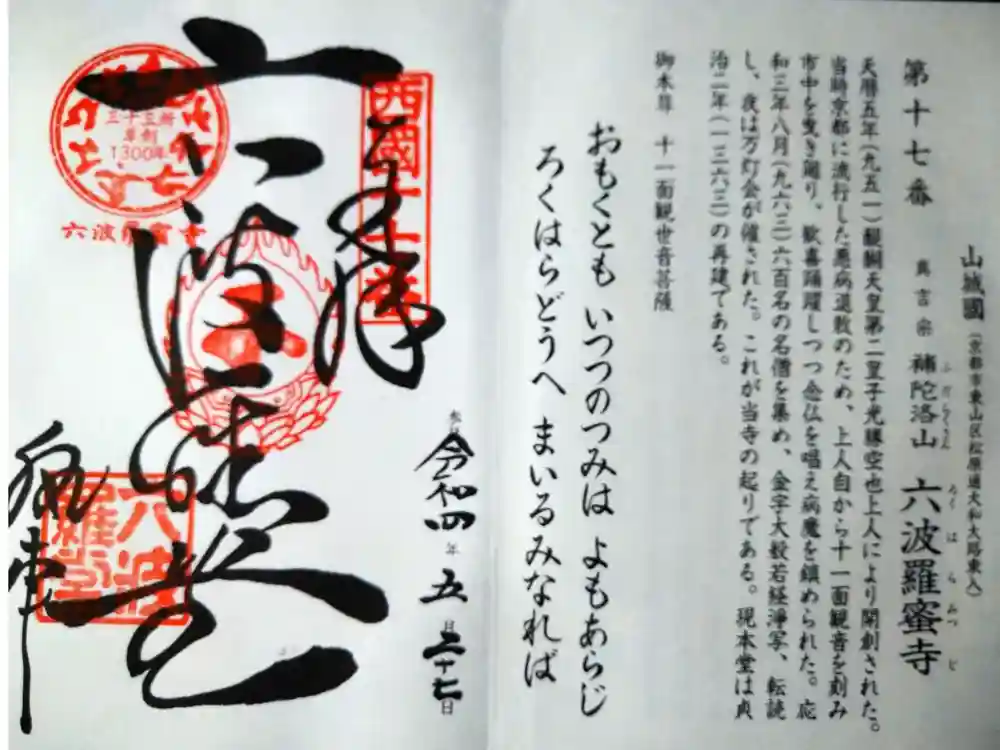 山城國（京都市東山区松原通大和大路東入）
第十七番
真言宗 補陀洛山 六波羅蜜寺
ふだらくさん
ろくはらみつじ
天暦五年（九五一）醍醐天皇第二皇子光勝空也上人により開創された。
当時京都に流行した悪病退散のため、上人自から十一面観音を刻み
市中を曳き廻り、歓喜踊躍しつつ念仏を唱え病魔を鎮められた。応
和三年八月（九六三）六百名の名僧を集め、金字大般若経浄写、転読
し、夜は万灯会が催された。これが当寺の起りである。現本堂は貞
治二年（一三六三）の再建である。
御本尊 十一面観世音菩薩
おもくとも いつつのつみは よもあらじ
ろくはらどうへ まいるみなれば
西國十七番
奉拝
令和四年五月二十七日
三十三所
草創
1300年
六波羅蜜寺
六波